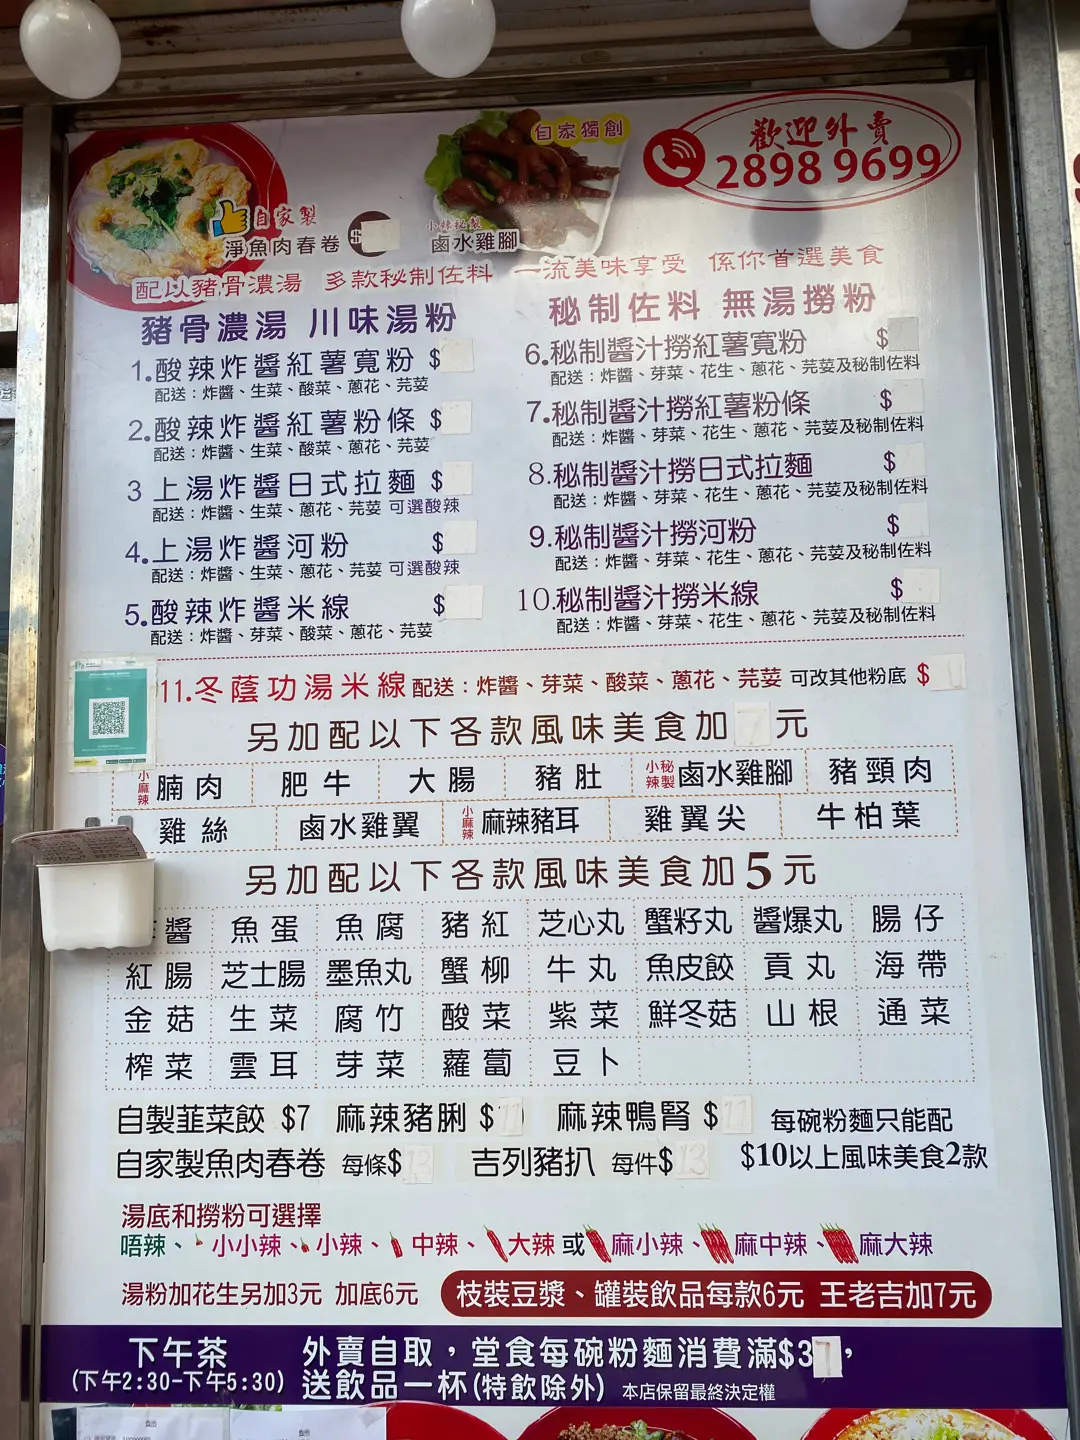 歡迎外賣
2898 9699
自家獨創
自家製
淨魚肉春卷 $
小辣秘製
鹵水雞腳
配以豬骨濃湯 多款秘制佐料 一流美味享受 係你首選美食
豬骨濃湯 川味湯粉
1.酸辣炸醬紅薯寬粉 $
配送：炸醬、生菜、酸菜、蔥花、芫荽
2.酸辣炸醬紅薯粉條 $
配送：炸醬、生菜、酸菜、蔥花、芫荽
3 上湯炸醬日式拉麵 $
配送：炸醬、生菜、蔥花、芫荽 可選酸辣
4.上湯炸醬河粉 $
配送：炸醬、生菜、蔥花、芫荽 可選酸辣
5.酸辣炸醬米線 $
配送：炸醬、芽菜、酸菜、蔥花、芫荽
秘制佐料 無湯撈粉
6.秘制醬汁撈紅薯寬粉 $
配送：炸醬、芽菜、花生、蔥花、芫荽及秘制佐料
7.秘制醬汁撈紅薯粉條 $
配送：炸醬、芽菜、花生、蔥花、芫荽及秘制佐料
8.秘制醬汁撈日式拉麵 $
配送：炸醬、芽菜、花生、蔥花、芫荽及秘制佐料
9.秘制醬汁撈河粉 $
配送：炸醬、芽菜、花生、蔥花、芫荽及秘制佐料
10.秘制醬汁撈米線 $
配送：炸醬、芽菜、花生、蔥花、芫荽及秘制佐料
11.冬蔭功湯米線 配送：炸醬、芽菜、酸菜、蔥花、芫荽 可改其他粉底 $
另加配以下各款風味美食加7元
小麻辣 腩肉 肥牛 大腸 豬肚 小辣秘製 鹵水雞腳 豬頸肉
雞絲 鹵水雞翼 小麻辣 麻辣豬耳 雞翼尖 牛柏葉
另加配以下各款風味美食加5元
醬 魚蛋 魚腐 豬紅 芝心丸 蟹籽丸 醬爆丸 腸仔
紅腸 芝士腸 墨魚丸 蟹柳 牛丸 魚皮餃 貢丸 海帶
金菇 生菜 腐竹 酸菜 紫菜 鮮冬菇 山根 通菜
榨菜 雲耳 芽菜 蘿蔔 豆卜
自製韮菜餃 $7 麻辣豬脷 $11 麻辣鴨腎 $11 每碗粉麵只能配
自家製魚肉春卷 每條$13 吉列豬扒 每件$13 $10以上風味美食2款
湯底和撈粉可選擇
唔辣、小小辣、小辣、中辣、大辣 或 麻小辣、麻中辣、麻大辣
湯粉加花生另加3元 加底6元 枝裝豆漿、罐裝飲品每款6元 王老吉加7元
下午茶 外賣自取，堂食每碗粉麵消費滿$37，
(下午2:30-下午5:30) 送飲品一杯(特飲除外) 本店保留最終決定權